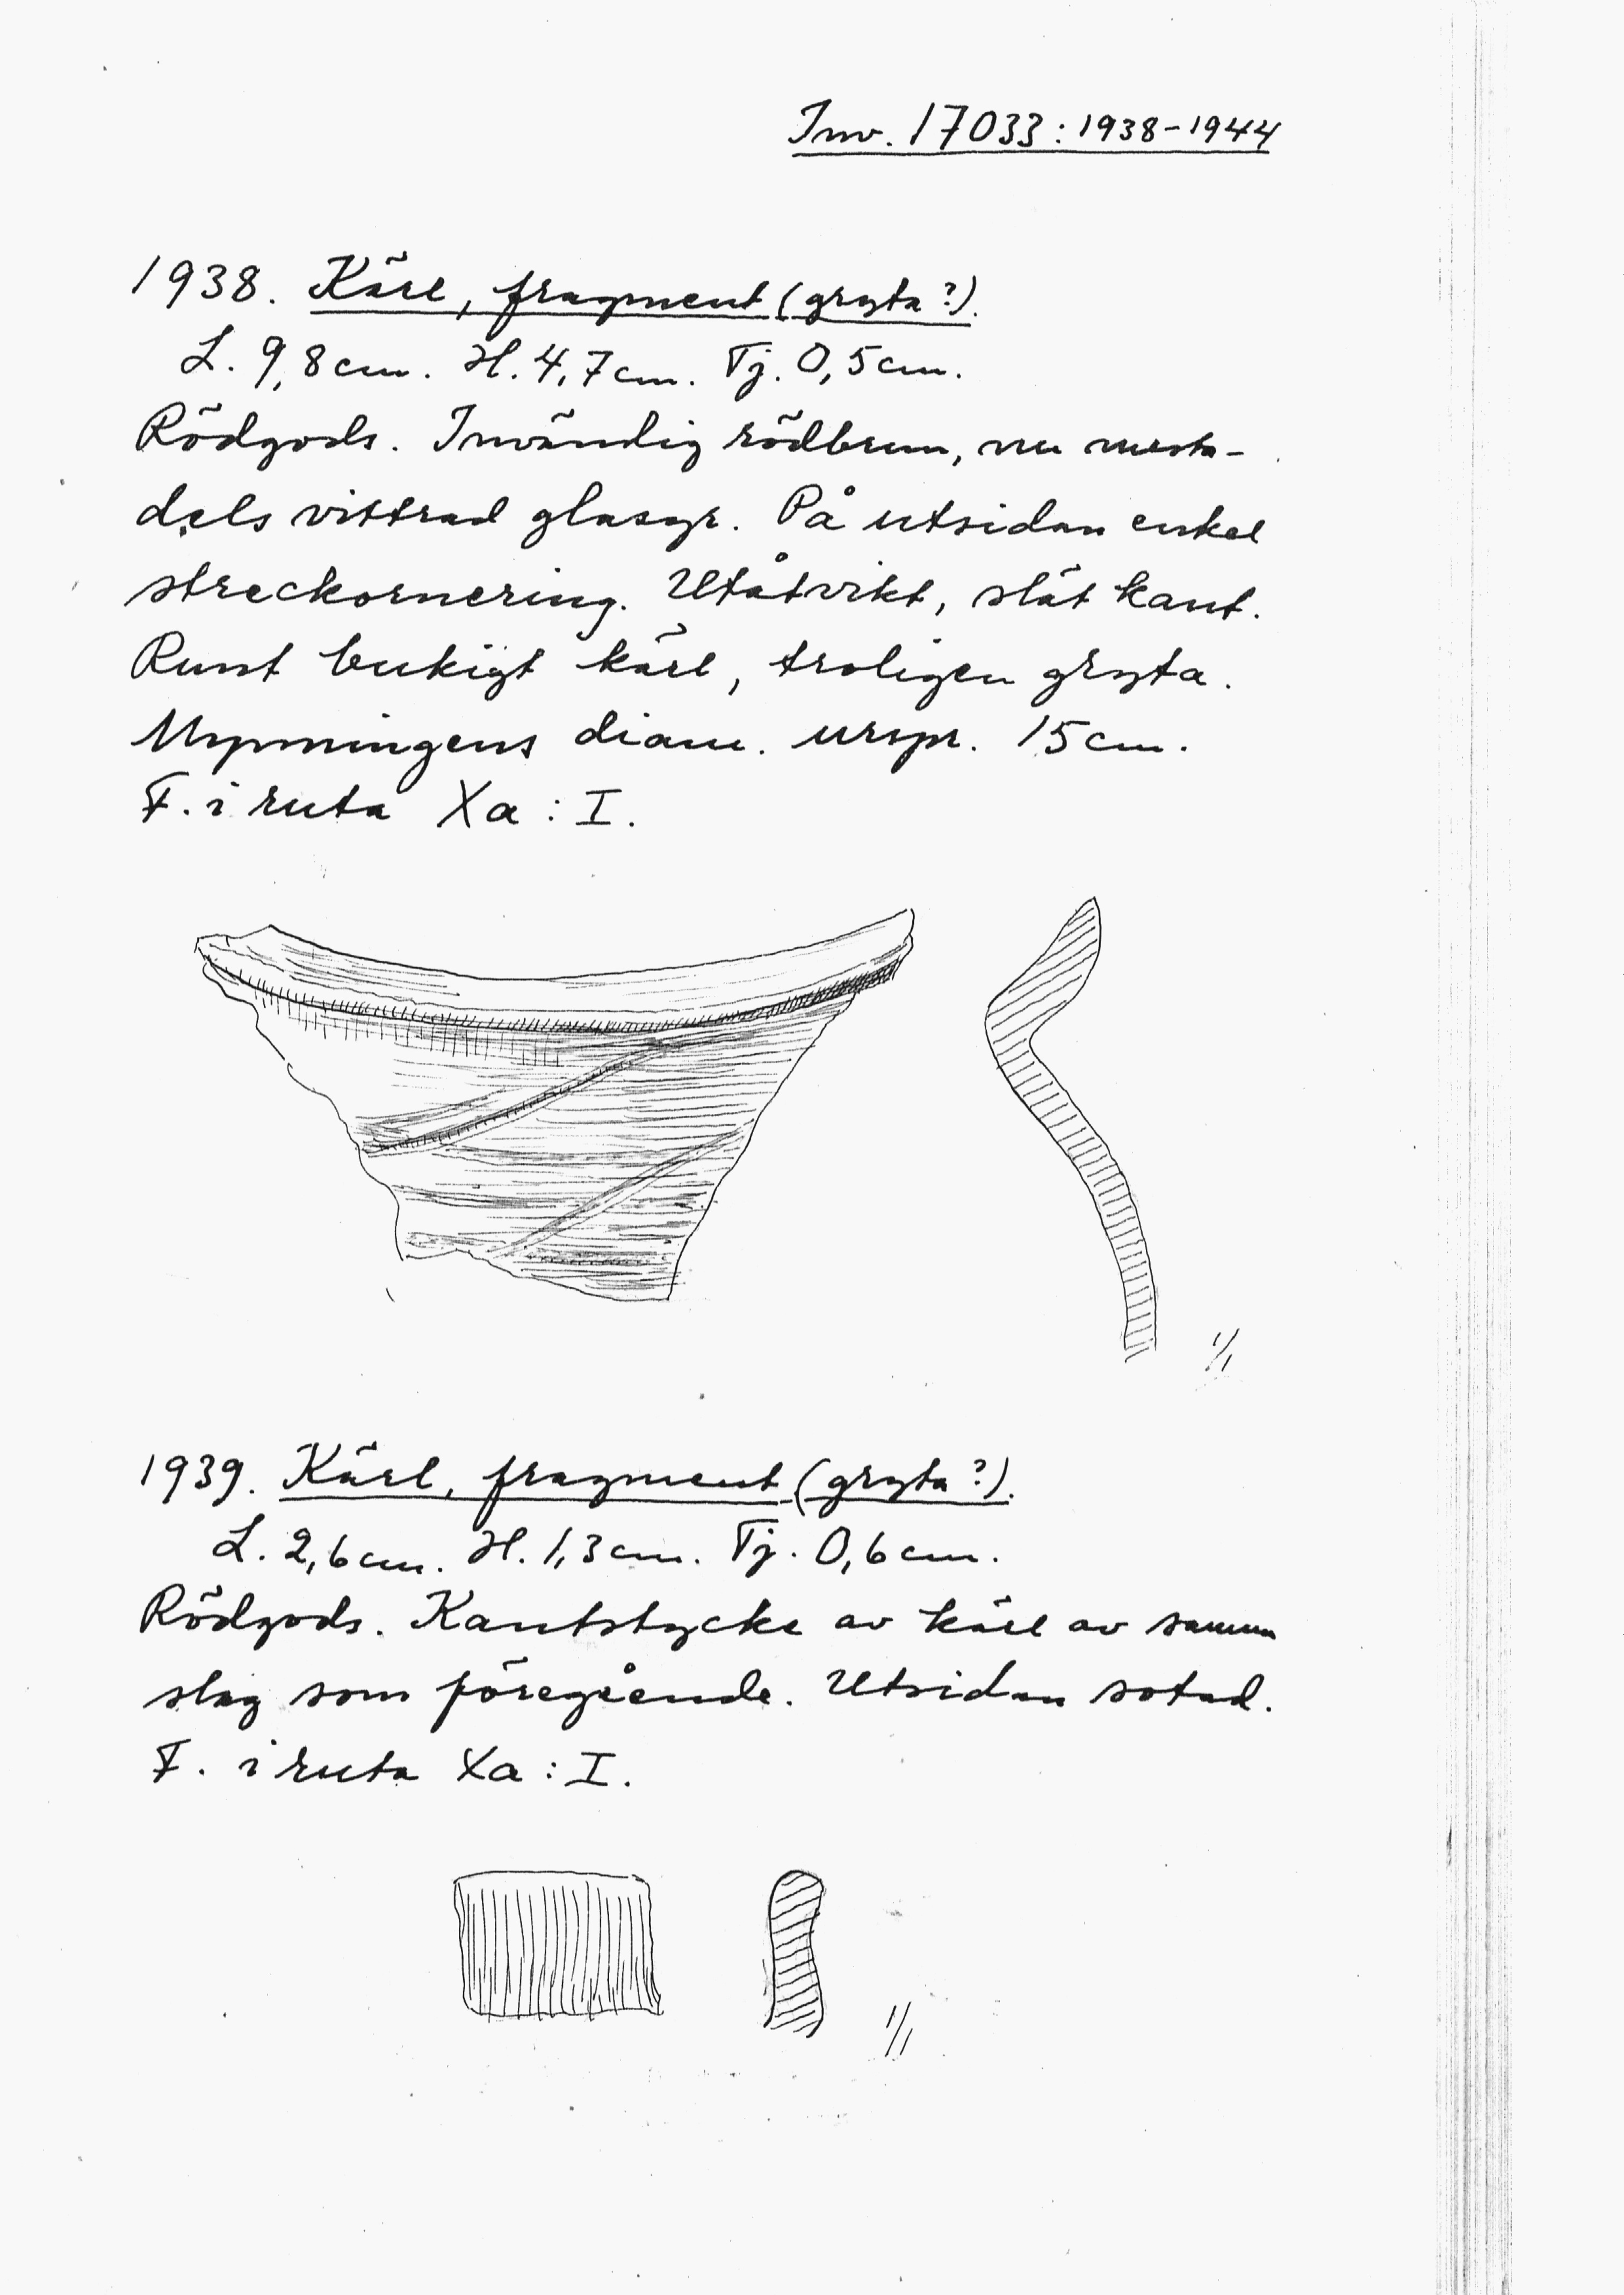 Inv. 17033:1938-1944
1938. Kärl, fragment (gryta?).
L. 9,8 cm. H. 4,7 cm. Tj. 0,5 cm.
Rödgods. Invändig rödbrun, nu mesta-
dels vittrad glasyr. På utsidan enkel
streckornering. Utåtvikt, slät kant.
Runt bukigt kärl, troligen gryta.
Mynningens diam. urspr. 15 cm.
F. i ruta Xa : I.
1/1
1939. Kärl, fragment (gryta?).
L. 2,6 cm. H. 1,3 cm. Tj. 0,6 cm.
Rödgods. Kantstycke av kärl av samma
slag som föregående. Utsidan sotad.
F. i ruta Xa : I.
1/1